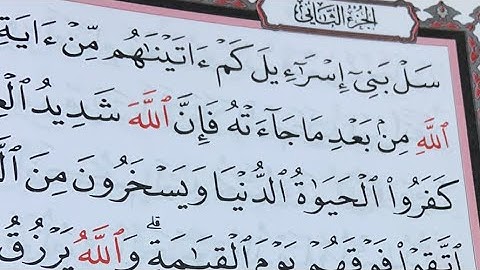 الجزء الثاني
سَلۡ بَنِيٓ إِسۡرَٰٓءِيلَ كَمۡ ءَاتَيۡنَٰهُم مِّنۡ ءَايَةِۭ
ٱللَّهِ مِنۢ بَعۡدِ مَا جَآءَتۡهُ فَإِنَّ ٱللَّهَ شَدِيدُ
كَفَرُواْ ٱلۡحَيَوٰةُ ٱلدُّنۡيَا وَيَسۡخَرُونَ مِنَ
ٱتَّقَوۡاْ فَوۡقَهُمۡ يَوۡمَ ٱلۡقِيَٰمَةِۗ وَٱللَّهُ يَرۡزُقُ